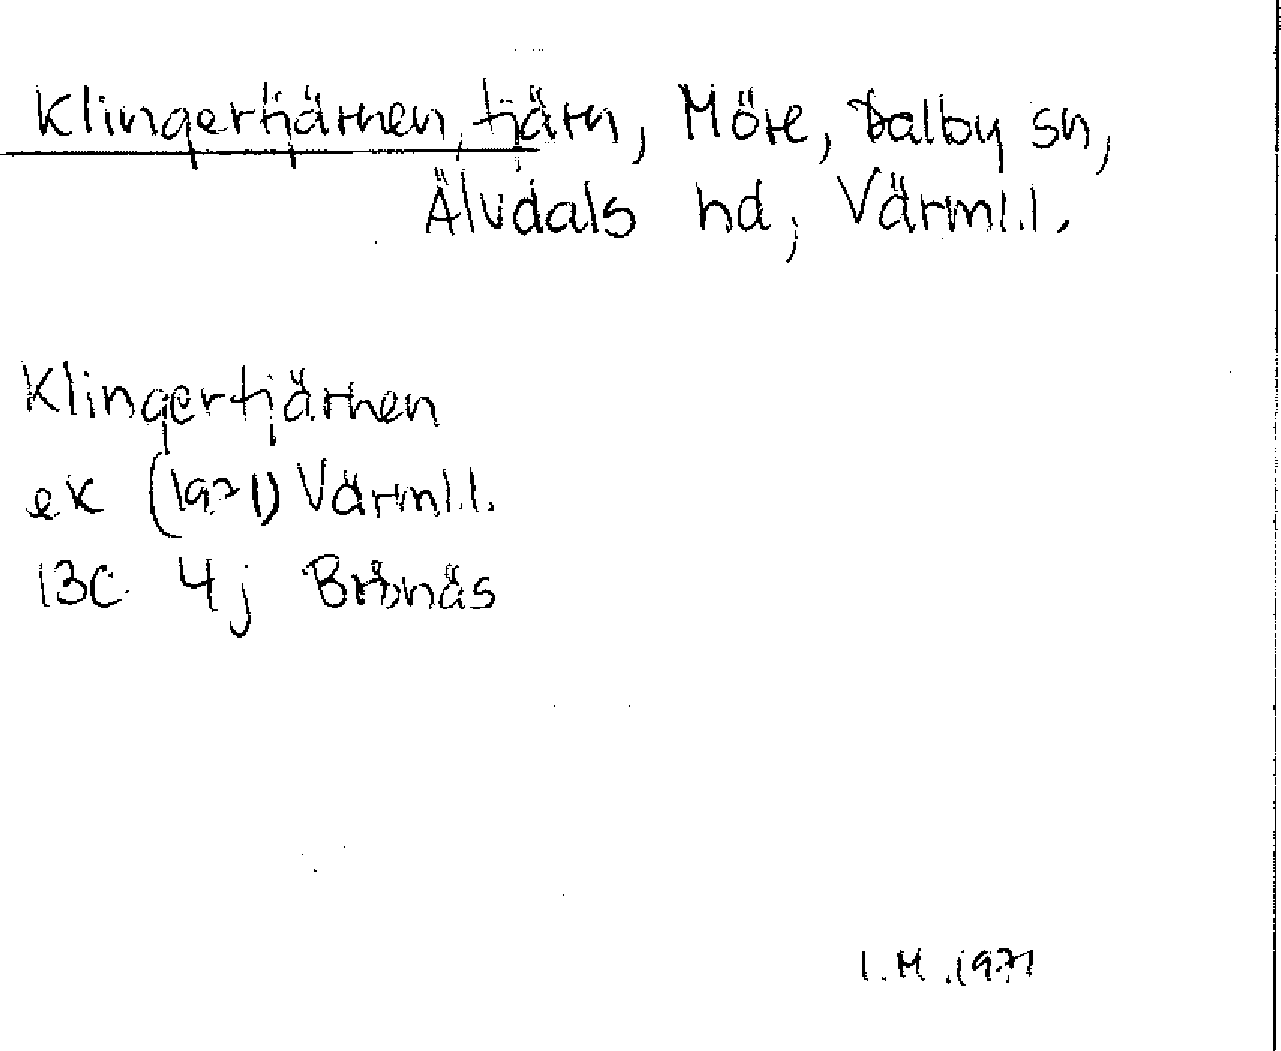 Klingertjärnen, tjärn, Möre, Dalby sn,
Älvdals hd, Värml.l.
Klingertjärnen
ek (1971) Värml.l.
13C 4j Brönäs
I.M.1971